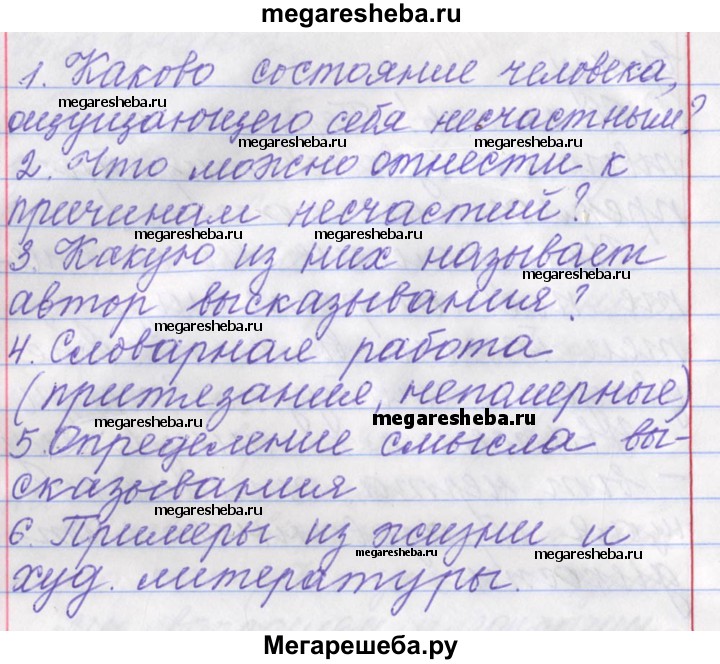 megaresheba.ru
1. Каково состояние человека,
megaresheba.ru megaresheba.ru
ощущающего себя несчастным?
2. Что можно отнести к
megaresheba.ru megaresheba.ru
причинам несчастий?
megaresheba.ru megaresheba.ru
3. Какую из них называет
megaresheba.ru
автор высказывания?
megaresheba.ru
4. Словарная работа
(притязания, непомерные)
megaresheba.ru megaresheba.ru
5. Определение смысла вы-
сказывания
megaresheba.ru
6. Примеры из жизни и
megaresheba.ru megaresheba.ru
худ. литературы.
Мегарешеба.ру